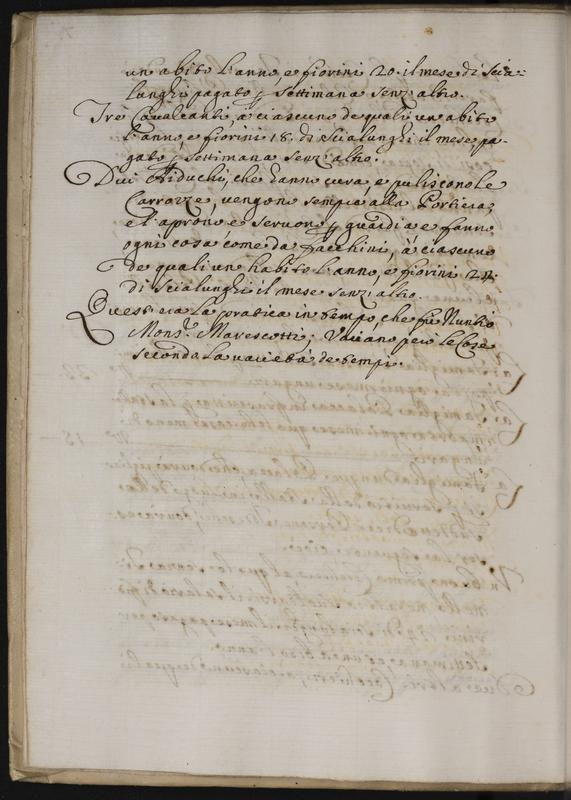 un abito l'anno, e fiorini 20. il mese di Scia-
lunghi pagato p settimana senz'altro.
Tre Cavalcanti, à ciascuno de quali un abito
l'anno, e fiorini 18. di Scialunghi il mese pa-
gato p settimana senz'altro.
Dieci Aiduchi, che hanno cura, e puliscono le
Carrozze, vengono sempre alla Portiera;
e l'aprono e servono p guardia e fanno
ogni cosa come da facchini, à ciascuno
de quali un habito l'anno, e fiorini 24.
di Scialunghi il mese senz'altro.
Quest'era la pratica in tempo, che fu Nuntio
Mons.r Marescotti; Variano però le Cose
secondo la varietà de tempi.